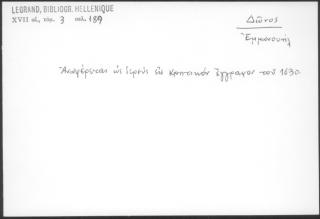 LEGRAND, BIBLIOGR. HELLENIQUE
XVII αἰ, τόμ. 3 σελ. 189
Δῶνος
Ἐμμανουήλ
Ἀναφέρεται ὡς ἱερεὺς εἰς κρητικόν ἔγγραφον τοῦ 1630